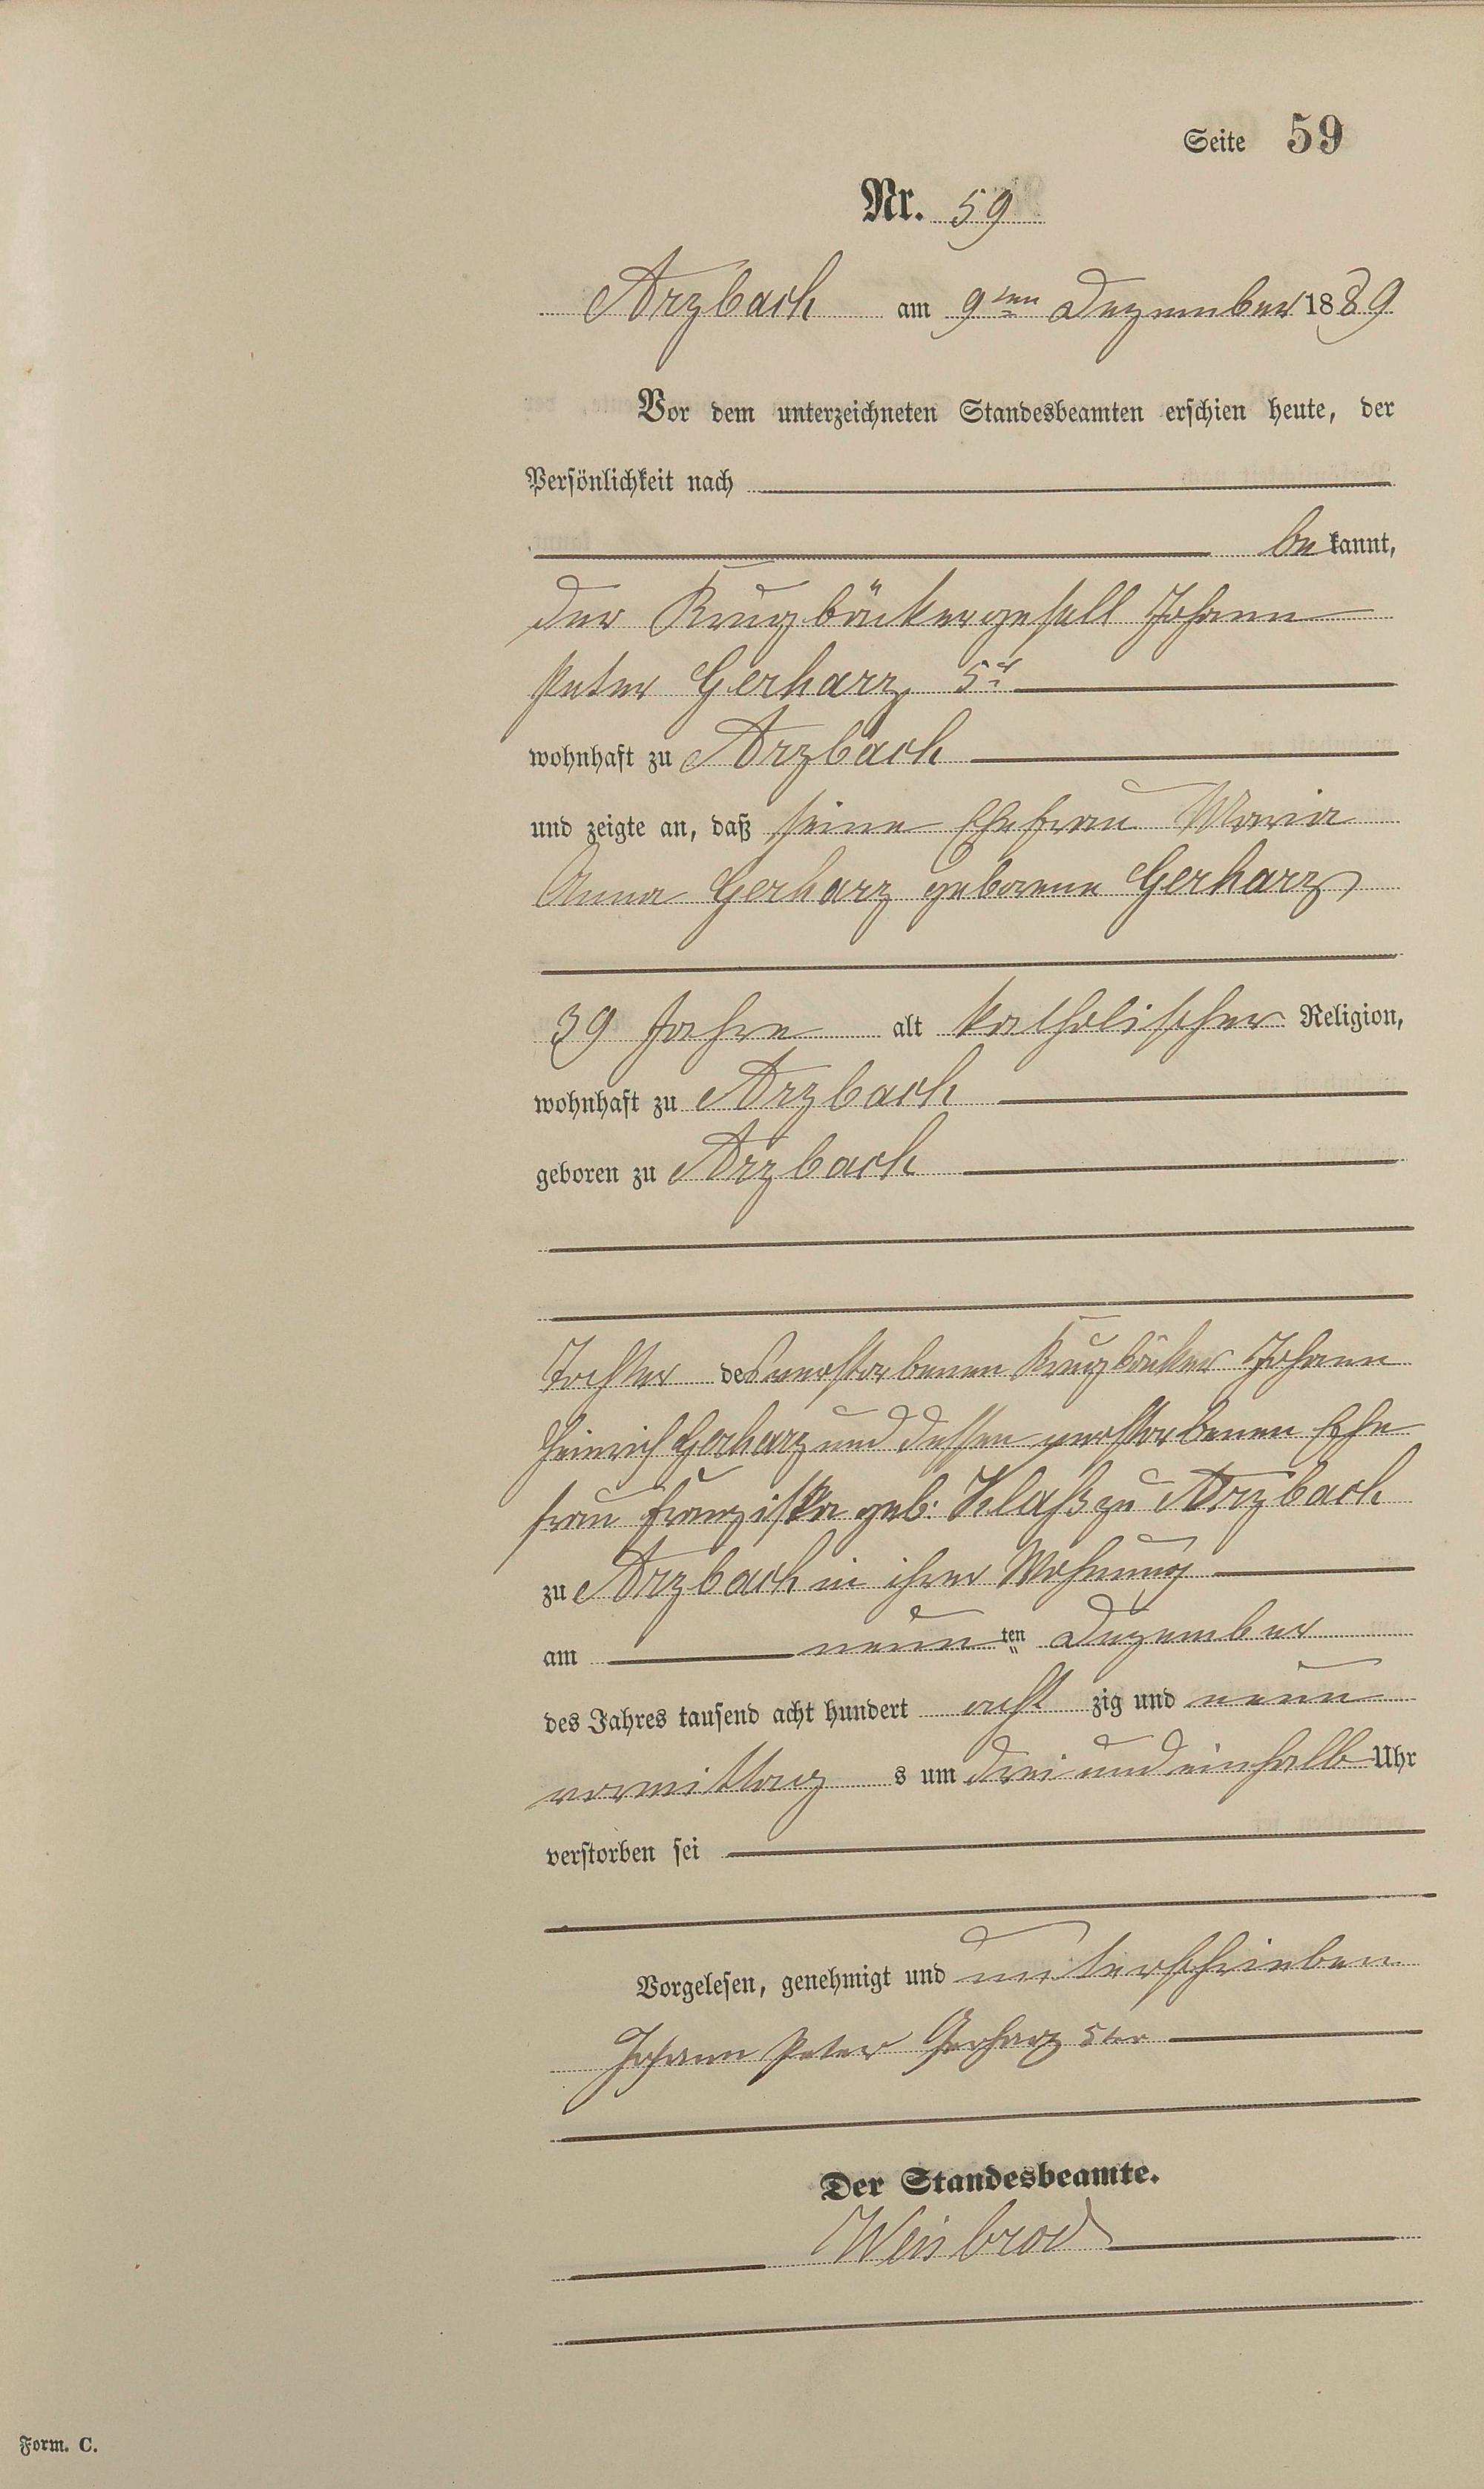 Seite 59
Nr. 59
Arzbach am 9ten Dezember 1889
Vor dem unterzeichneten Standesbeamten erschien heute, der
Persönlichkeit nach
be kannt,
der Krugbäckergesell Johann
Peter Gerharz 5r
wohnhaft zu Arzbach
und zeigte an, daß seine Ehefrau Maria
Anna Gerharz geborene Gerharz
39 Jahre alt katholischer Religion,
wohnhaft zu Arzbach
geboren zu Arzbach
Tochter des verstorbenen Krugbäcker Johann
Heinrich Gerharz und dessen verstorbenen Ehe
frau Franziska geb. Klaß zu Arzbach
zu Arzbach in ihrer Wohnung
am neun ten Dezember
des Jahres tausend acht hundert acht zig und neun
vormittag s um drei und einhalb Uhr
verstorben sei
Vorgelesen, genehmigt und unterschrieben
Johann Peter Gerharz 5ter
Der Standesbeamte.
Weisbrod
Form. C.